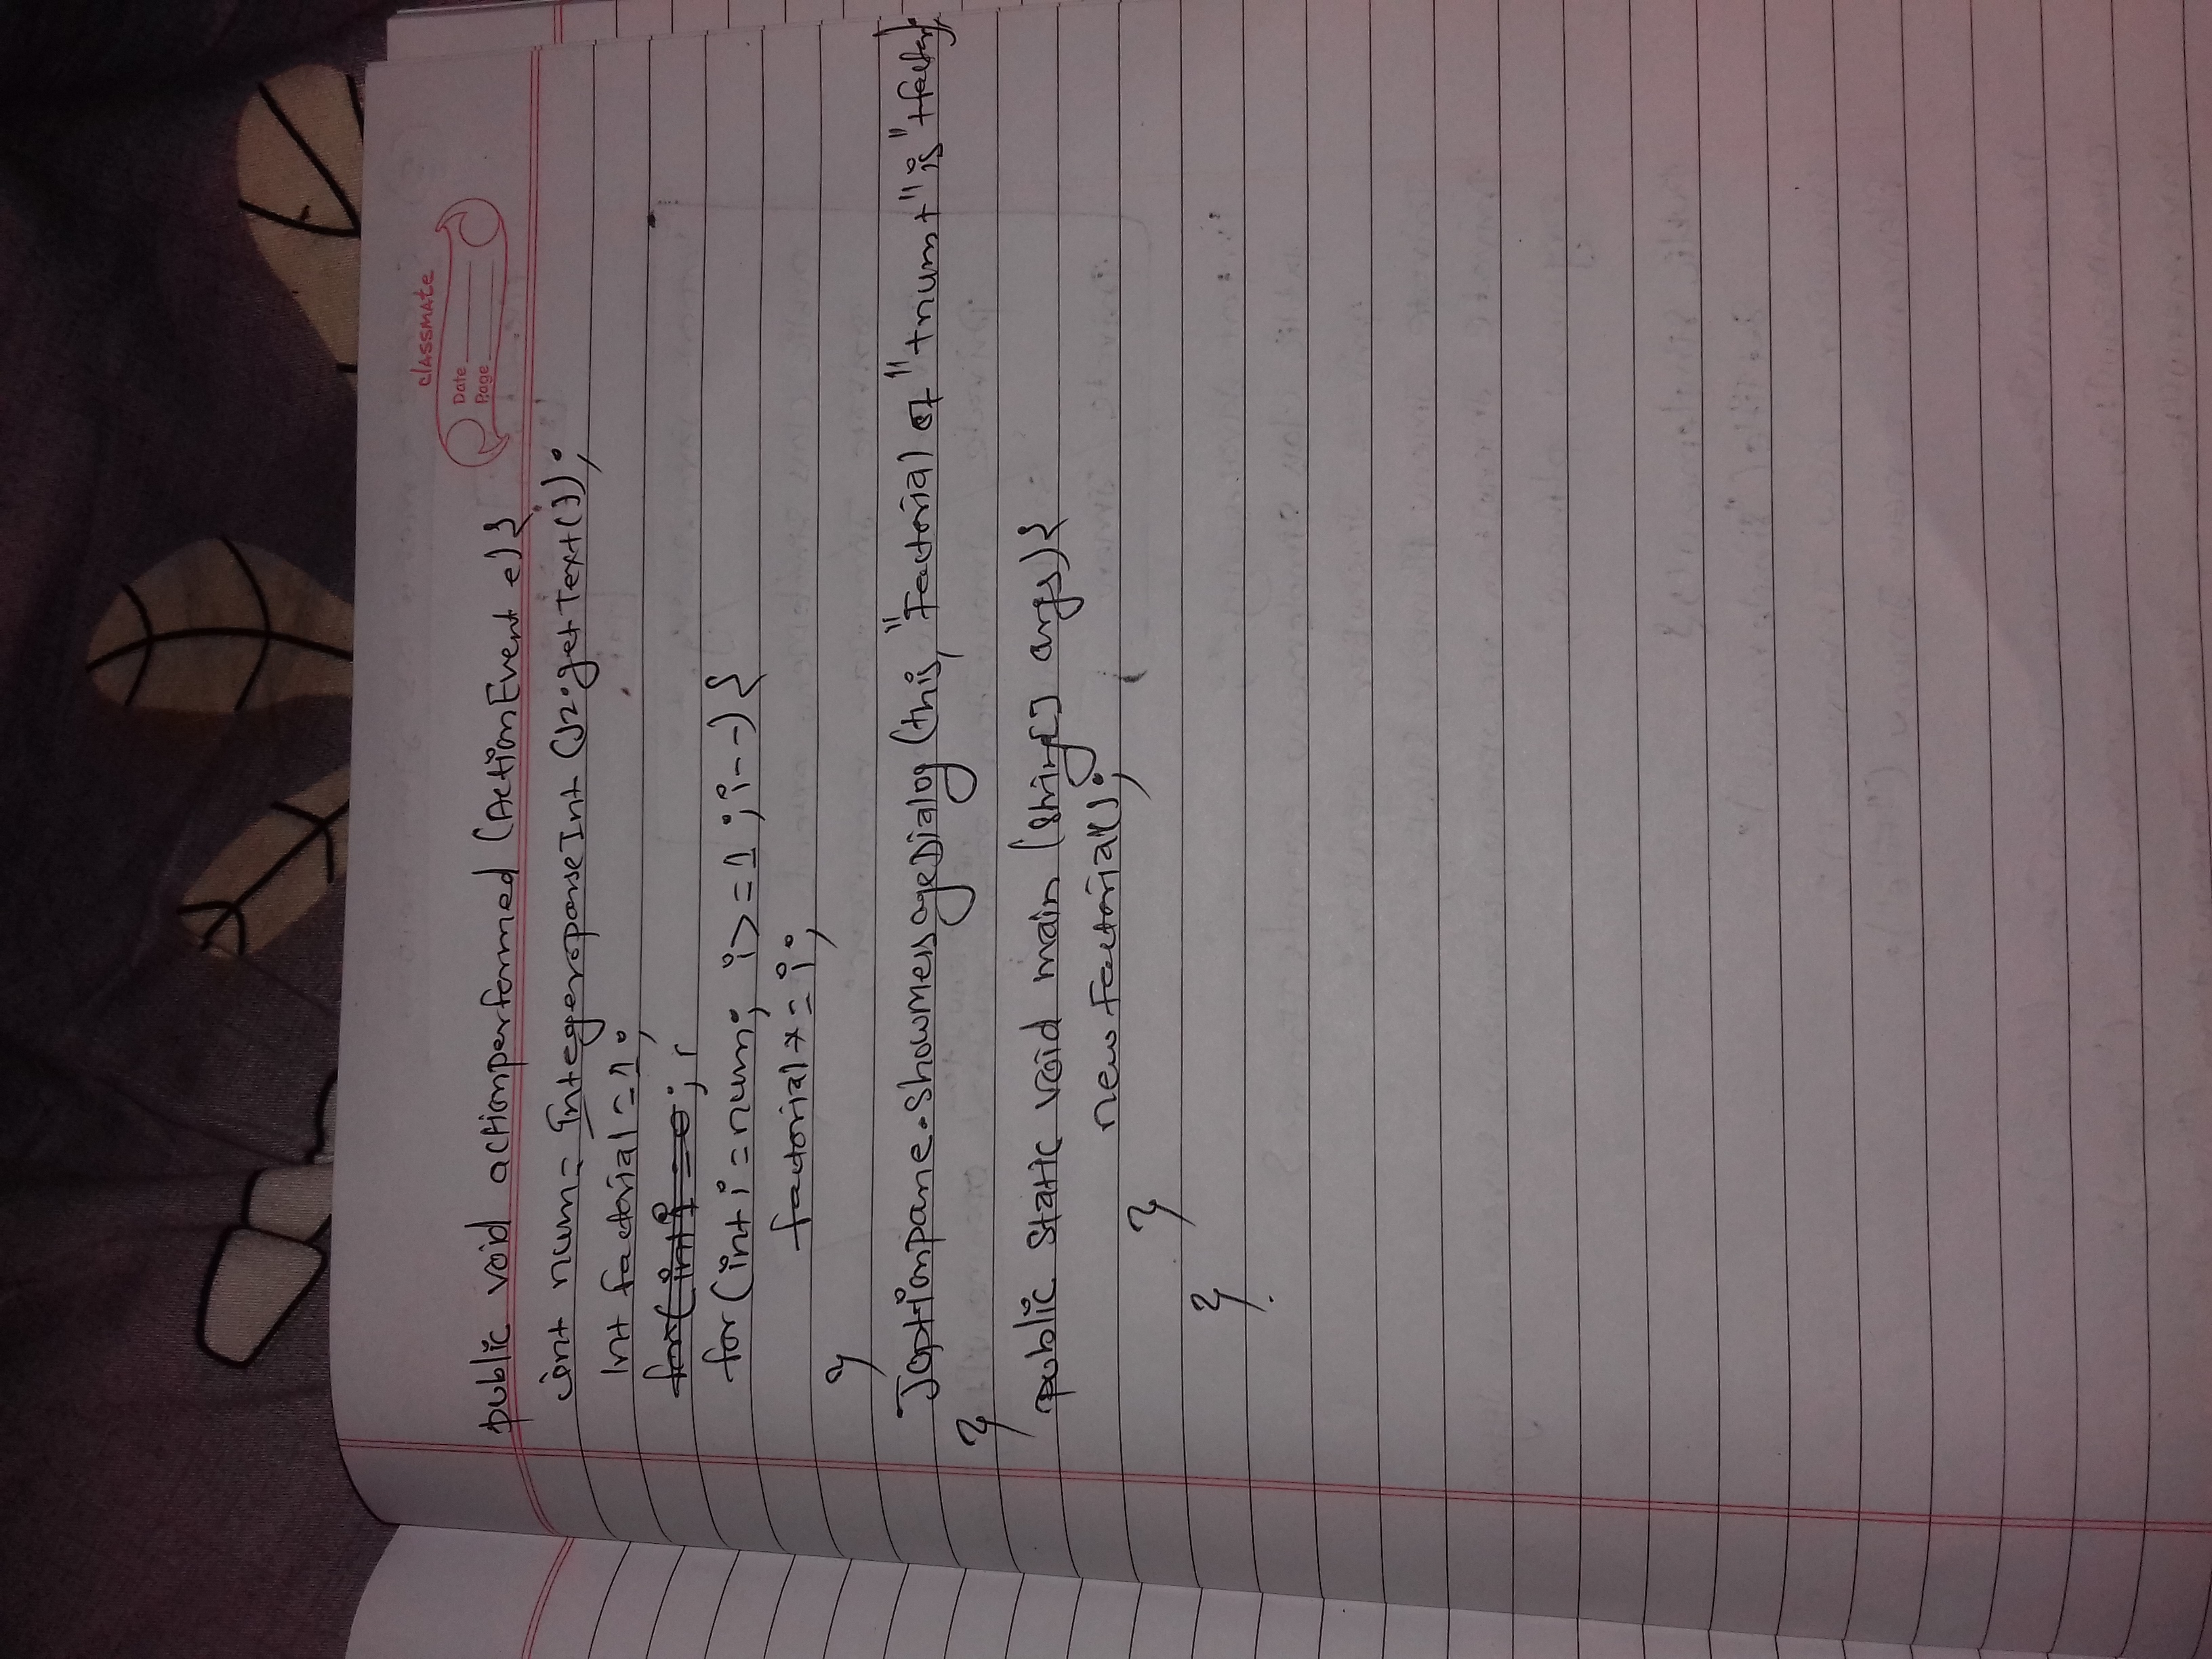 classmate
Date
Page
public void actionperformed (ActionEvent e) {
int num = Integer.parseInt (J2.getText());
Int factorial = 1;
for(int i = 0; i
for (int i = num; i >= 1 ; i--) {
factorial *= i;
}
Joptionpane.showmessageDialog (this, "Factorial of "+num+" is "+factor);
}
public static void main (string[] args) {
new Factorial();
}
}